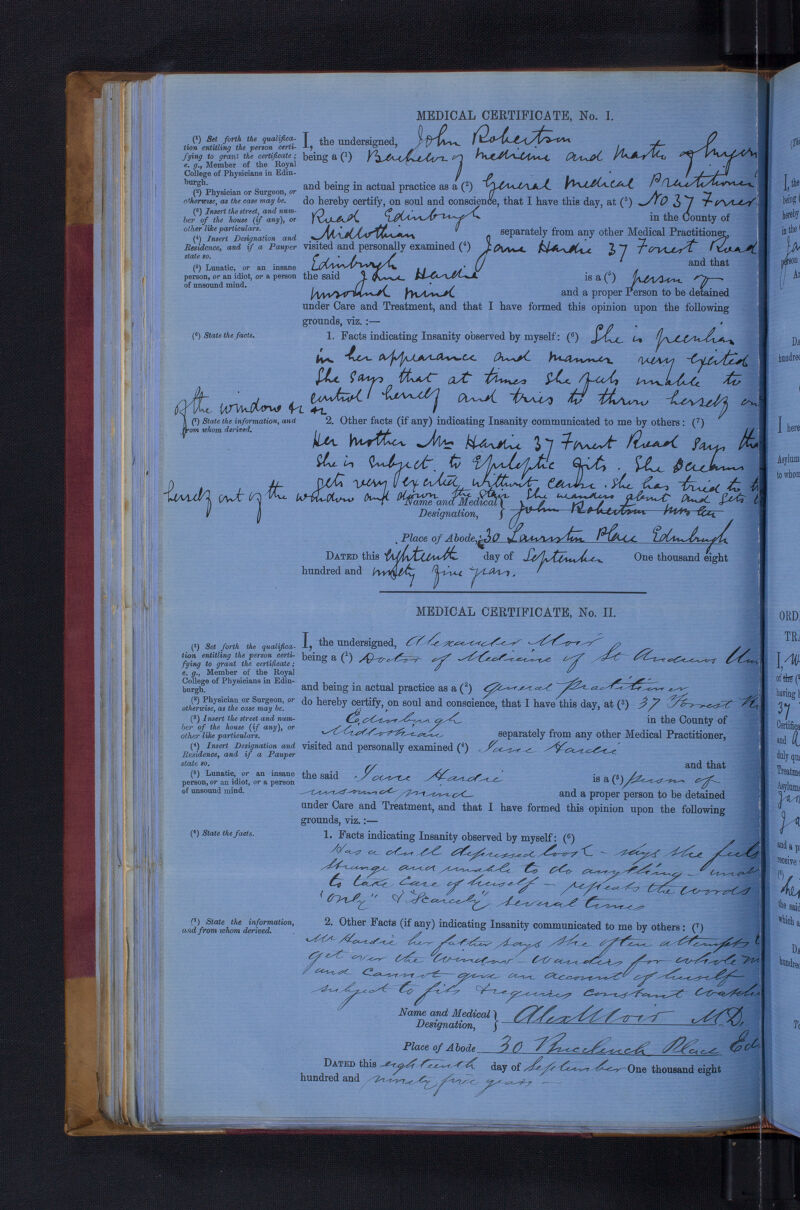 MEDICAL CERTIFICATE, No. I.
(1) Set forth the qualifica-
tion entitling the person certi-
fying to grant the certificate;
e. g., Member of the Royal
College of Physicians in Edin-
burgh.
(2) Physician or Surgeon, or
otherwise, as the case may be.
(3) Insert the street, and num-
ber of the house (if any), or
other like particulars.
(4) Insert Designation and
Residence, and if a Pauper
state so.
(5) Lunatic, or an insane
person, or an idiot, or a person
of unsound mind.
I, the undersigned, John Robertson
being a (1) Bachelor of Medicine and Master of Surgery
and being in actual practice as a (2) General Medical Practitioner
do hereby certify, on soul and conscience, that I have this day, at (3) No 37 Forrest
Road Edinburgh in the County of
Midlothian separately from any other Medical Practitioner,
visited and personally examined (4) Jane Hardie 37 Forrest Road
Edinburgh and that
the said Jane Hardie is a (5) person of
unsound mind and a proper Person to be detained
under Care and Treatment, and that I have formed this opinion upon the following
grounds, viz. :—
(6) State the facts.
1. Facts indicating Insanity observed by myself: (6) She is peculiar
in her appearance and manner very excited
She says that at times she feels unable to
control herself and tries to throw herself
of the window
(7) State the information, and
from whom derived.
2. Other facts (if any) indicating Insanity communicated to me by others: (7)
Her mother Mrs Hardie 37 Forrest Road says
She is subject to Epileptic fits. She screams
gets very excited without cause. She has tried to
herself out of the window and down the stair She wanders about and gets
Name and Medical
Designation, } John Robertson
Place of Abode, 30 Lauriston Place Edinburgh
DATED this Eighteenth day of September One thousand eight
hundred and ninety five years.
MEDICAL CERTIFICATE, No. II.
(1) Set forth the qualifica-
tion entitling the person certi-
fying to grant the certificate;
e. g., Member of the Royal
College of Physicians in Edin-
burgh.
(2) Physician or Surgeon, or
otherwise, as the case may be.
(3) Insert the street and num-
ber of the house (if any), or
other like particulars.
(4) Insert Designation and
Residence, and if a Pauper
state so.
(5) Lunatic, or an insane
person, or an idiot, or a person
of unsound mind.
I, the undersigned, Alexander Moir
being a (1) Doctor of Medicine of St Andrews
and being in actual practice as a (2) General Practitioner
do hereby certify, on soul and conscience, that I have this day, at (3) 37 Forrest
Edinburgh in the County of
Midlothian separately from any other Medical Practitioner,
visited and personally examined (4) Jane Hardie
and that
the said Jane Hardie is a (5) person of
unsound mind and a proper person to be detained
under Care and Treatment, and that I have formed this opinion upon the following
grounds, viz. :—
(6) State the facts.
1. Facts indicating Insanity observed by myself: (6)
Has a dull depressed look - says she feels
strange and unable to do anything -
to take care of herself - repeats the words
"only" & "Scarcely" several times
(7) State the information,
and from whom derived.
2. Other Facts (if any) indicating Insanity communicated to me by others: (7)
Mr Hardie her father says she often attempts
get over the window - wanders for whole
and cannot give an account of herself
subject to fits & requires constant
Name and Medical
Designation, } Alex Moir MD,
Place of Abode 30 Buccleuch Place
DATED this eighteenth day of September One thousand eight
hundred and ninety five years